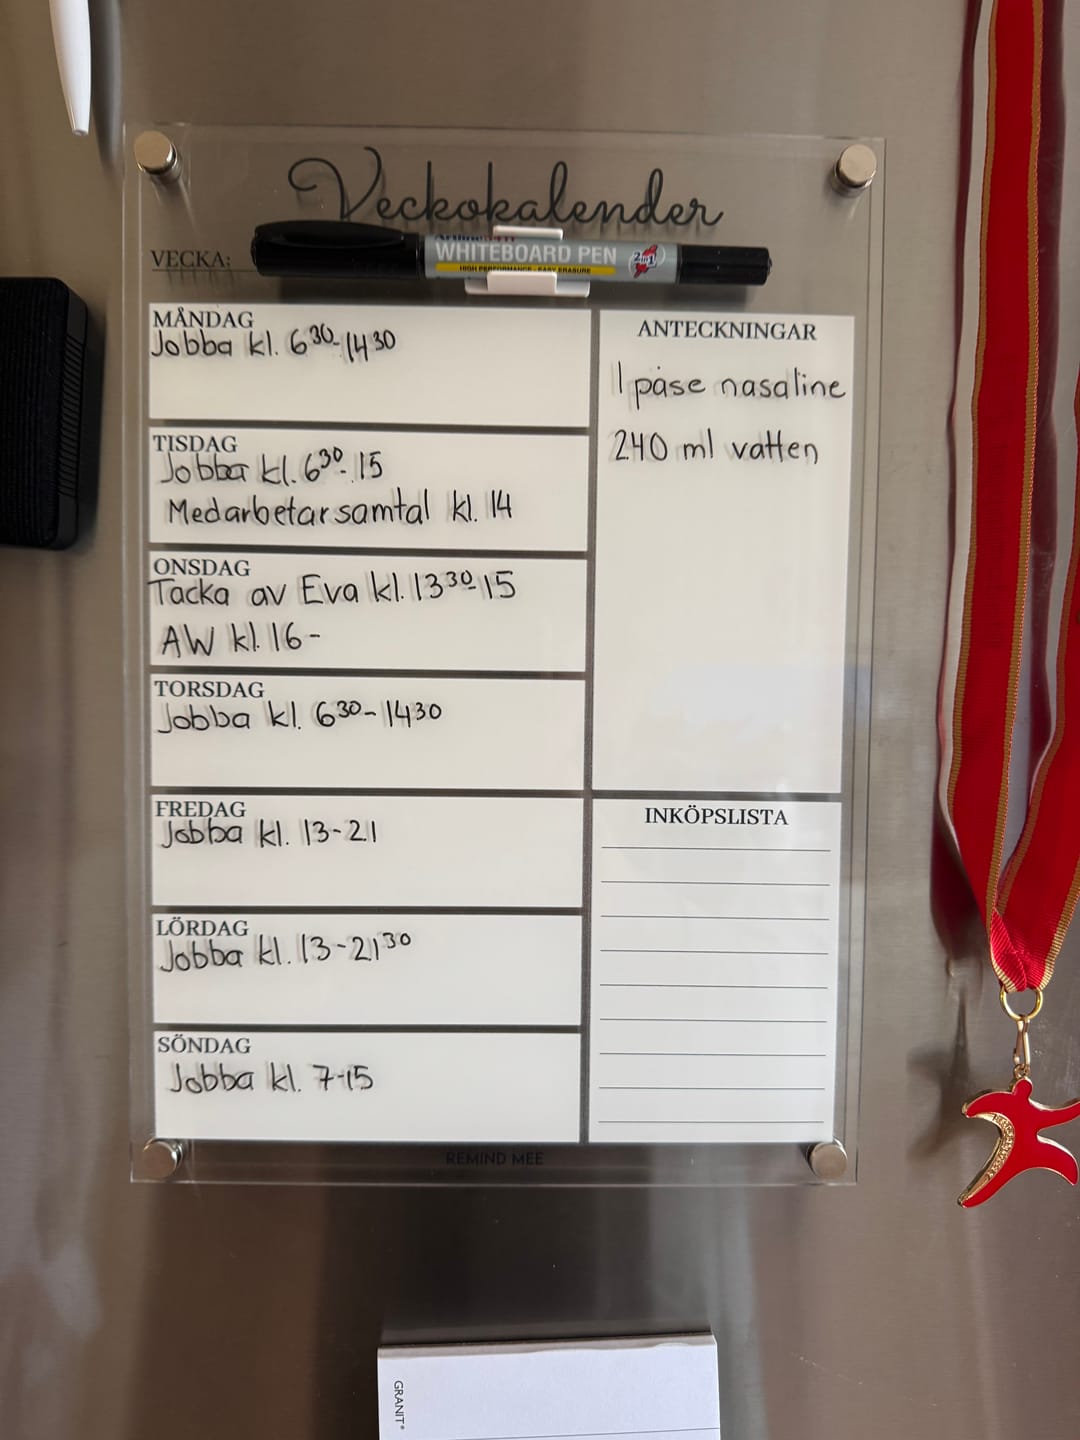 Veckokalender
VECKA:
WHITEBOARD PEN
2in1
HIGH PERFORMANCE - EASY ERASURE
MÅNDAG
Jobba kl. 6³⁰-14³⁰
TISDAG
Jobba kl. 6³⁰-15
Medarbetarsamtal kl. 14
ONSDAG
Tacka av Eva kl. 13³⁰-15
AW kl. 16-
TORSDAG
Jobba kl. 6³⁰-14³⁰
FREDAG
Jobba kl. 13-21
LÖRDAG
Jobba kl. 13-21³⁰
SÖNDAG
Jobba kl. 7-15
ANTECKNINGAR
1 påse nasaline
240 ml vatten
INKÖPSLISTA
REMIND MEE
GRANIT®